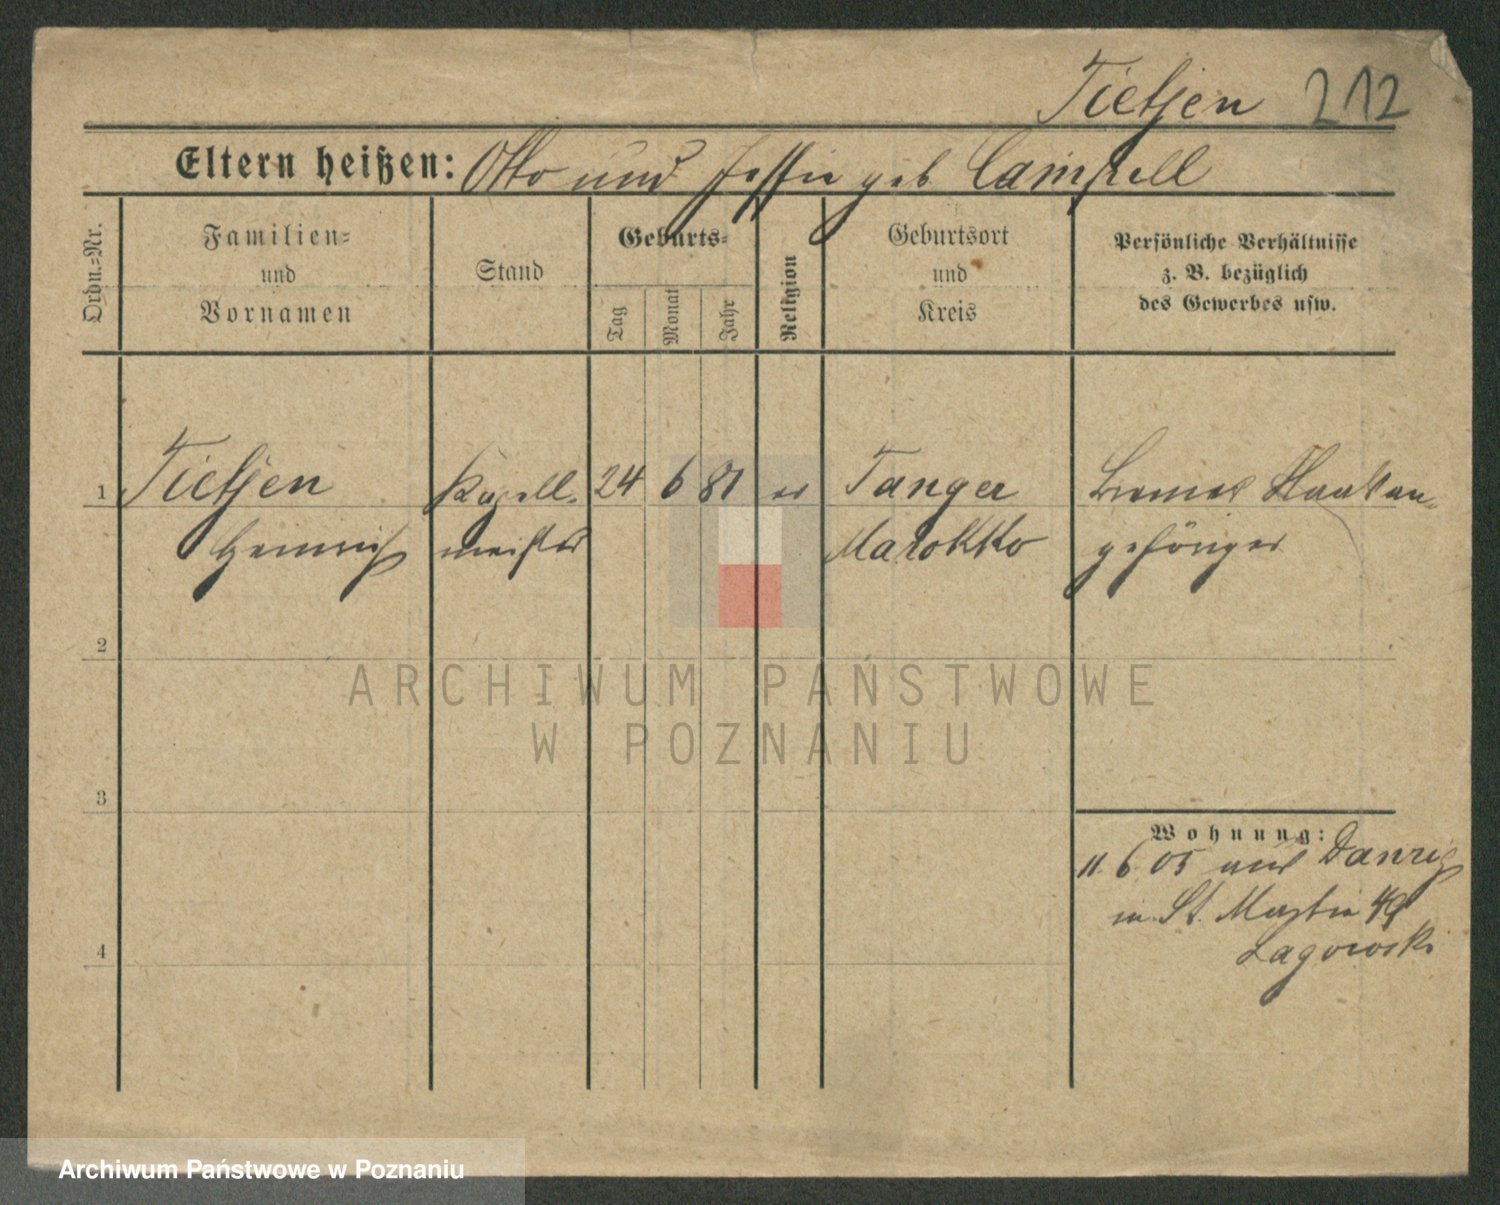 Tietjen 212
Eltern heißen: Otto und Jessie geb Campell
Ordn.-Nr.
Familien- und Vornamen
Stand
Geburts-
Tag
Monat
Jahr
Religion
Geburtsort und Kreis
Persönliche Verhältnisse
z. B. bezüglich
des Gewerbes usw.
1 Tietjen Kapell- 24 6 81 ev Tanger Bremer Staatsan-
Heinrich meister Marokko gehöriger
2
ARCHIWUM PAŃSTWOWE
W POZNANIU
3
Wohnung:
11. 6 05 aus Danzig
in St. Martin 49
Lagowski
4
Archiwum Państwowe w Poznaniu